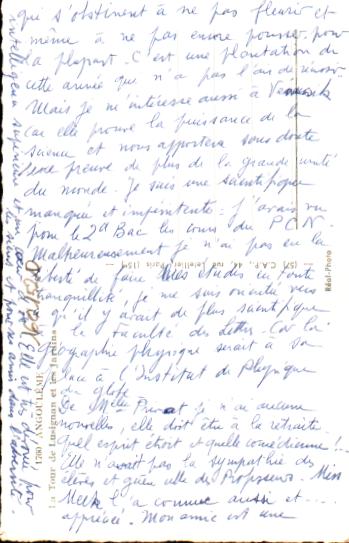 qui s'obstinent à ne pas fleurir et
même à ne pas encore pousser pour
la plupart. C'est une plantation de
cette année qui n'a pas l'air de réussir.
Mais je m'intéresse aussi à
car elle prouve la puissance de la
Science et nous apportera sans doute
une preuve de plus de la grande unité
du monde. Je suis une scientifique
manquée et impénitente : j'avais vu
pour le 2d Bac les cours du P.C.N.
Malheureusement je n'ai pas eu la
liberté de faire mes études en toute
tranquillité, je me suis orientée vers
ce qu'il y avait de plus scientifique
à la Faculté des Lettres. Car la
géographie physique serait à sa
place à l'Institut de Physique
du globe
De Melle je n'ai aucune
nouvelle, elle doit être à la retraite.
Quel esprit étroit et quelle comédienne !..
Elle n'avait pas la sympathie des
élèves et guère celle des Professeurs. Miss
l'a connue aussi et ....
appréciée. Mon amie est une
intelligence supérieure et un cœur
1780 ANGOULÊME
La Tour de Lusignan et les Jardins
C.A.P., 44, rue Letellier Paris (15e)
Réal-Photo